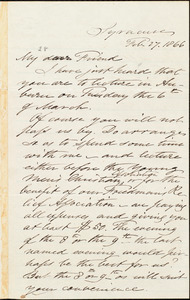 Syracuse
Feb. 27, 1866
28
My dear Friend
I have just heard that
you are to lecture in Au-
burn on Tuesday the 6th
of March.
Of course you will not
pass us by. Do arrange
so as to spend some
time with me – and lecture
either before the Young
Men's Christian or for
the benefit of our Freedman's Re-
lief Association – we paying
all expenses and giving you
at least $50. The evening
of the 8th or the 9th. The last
named evening would per-
haps be the best for us.
But the 8th or 9th as will suit
your convenience.